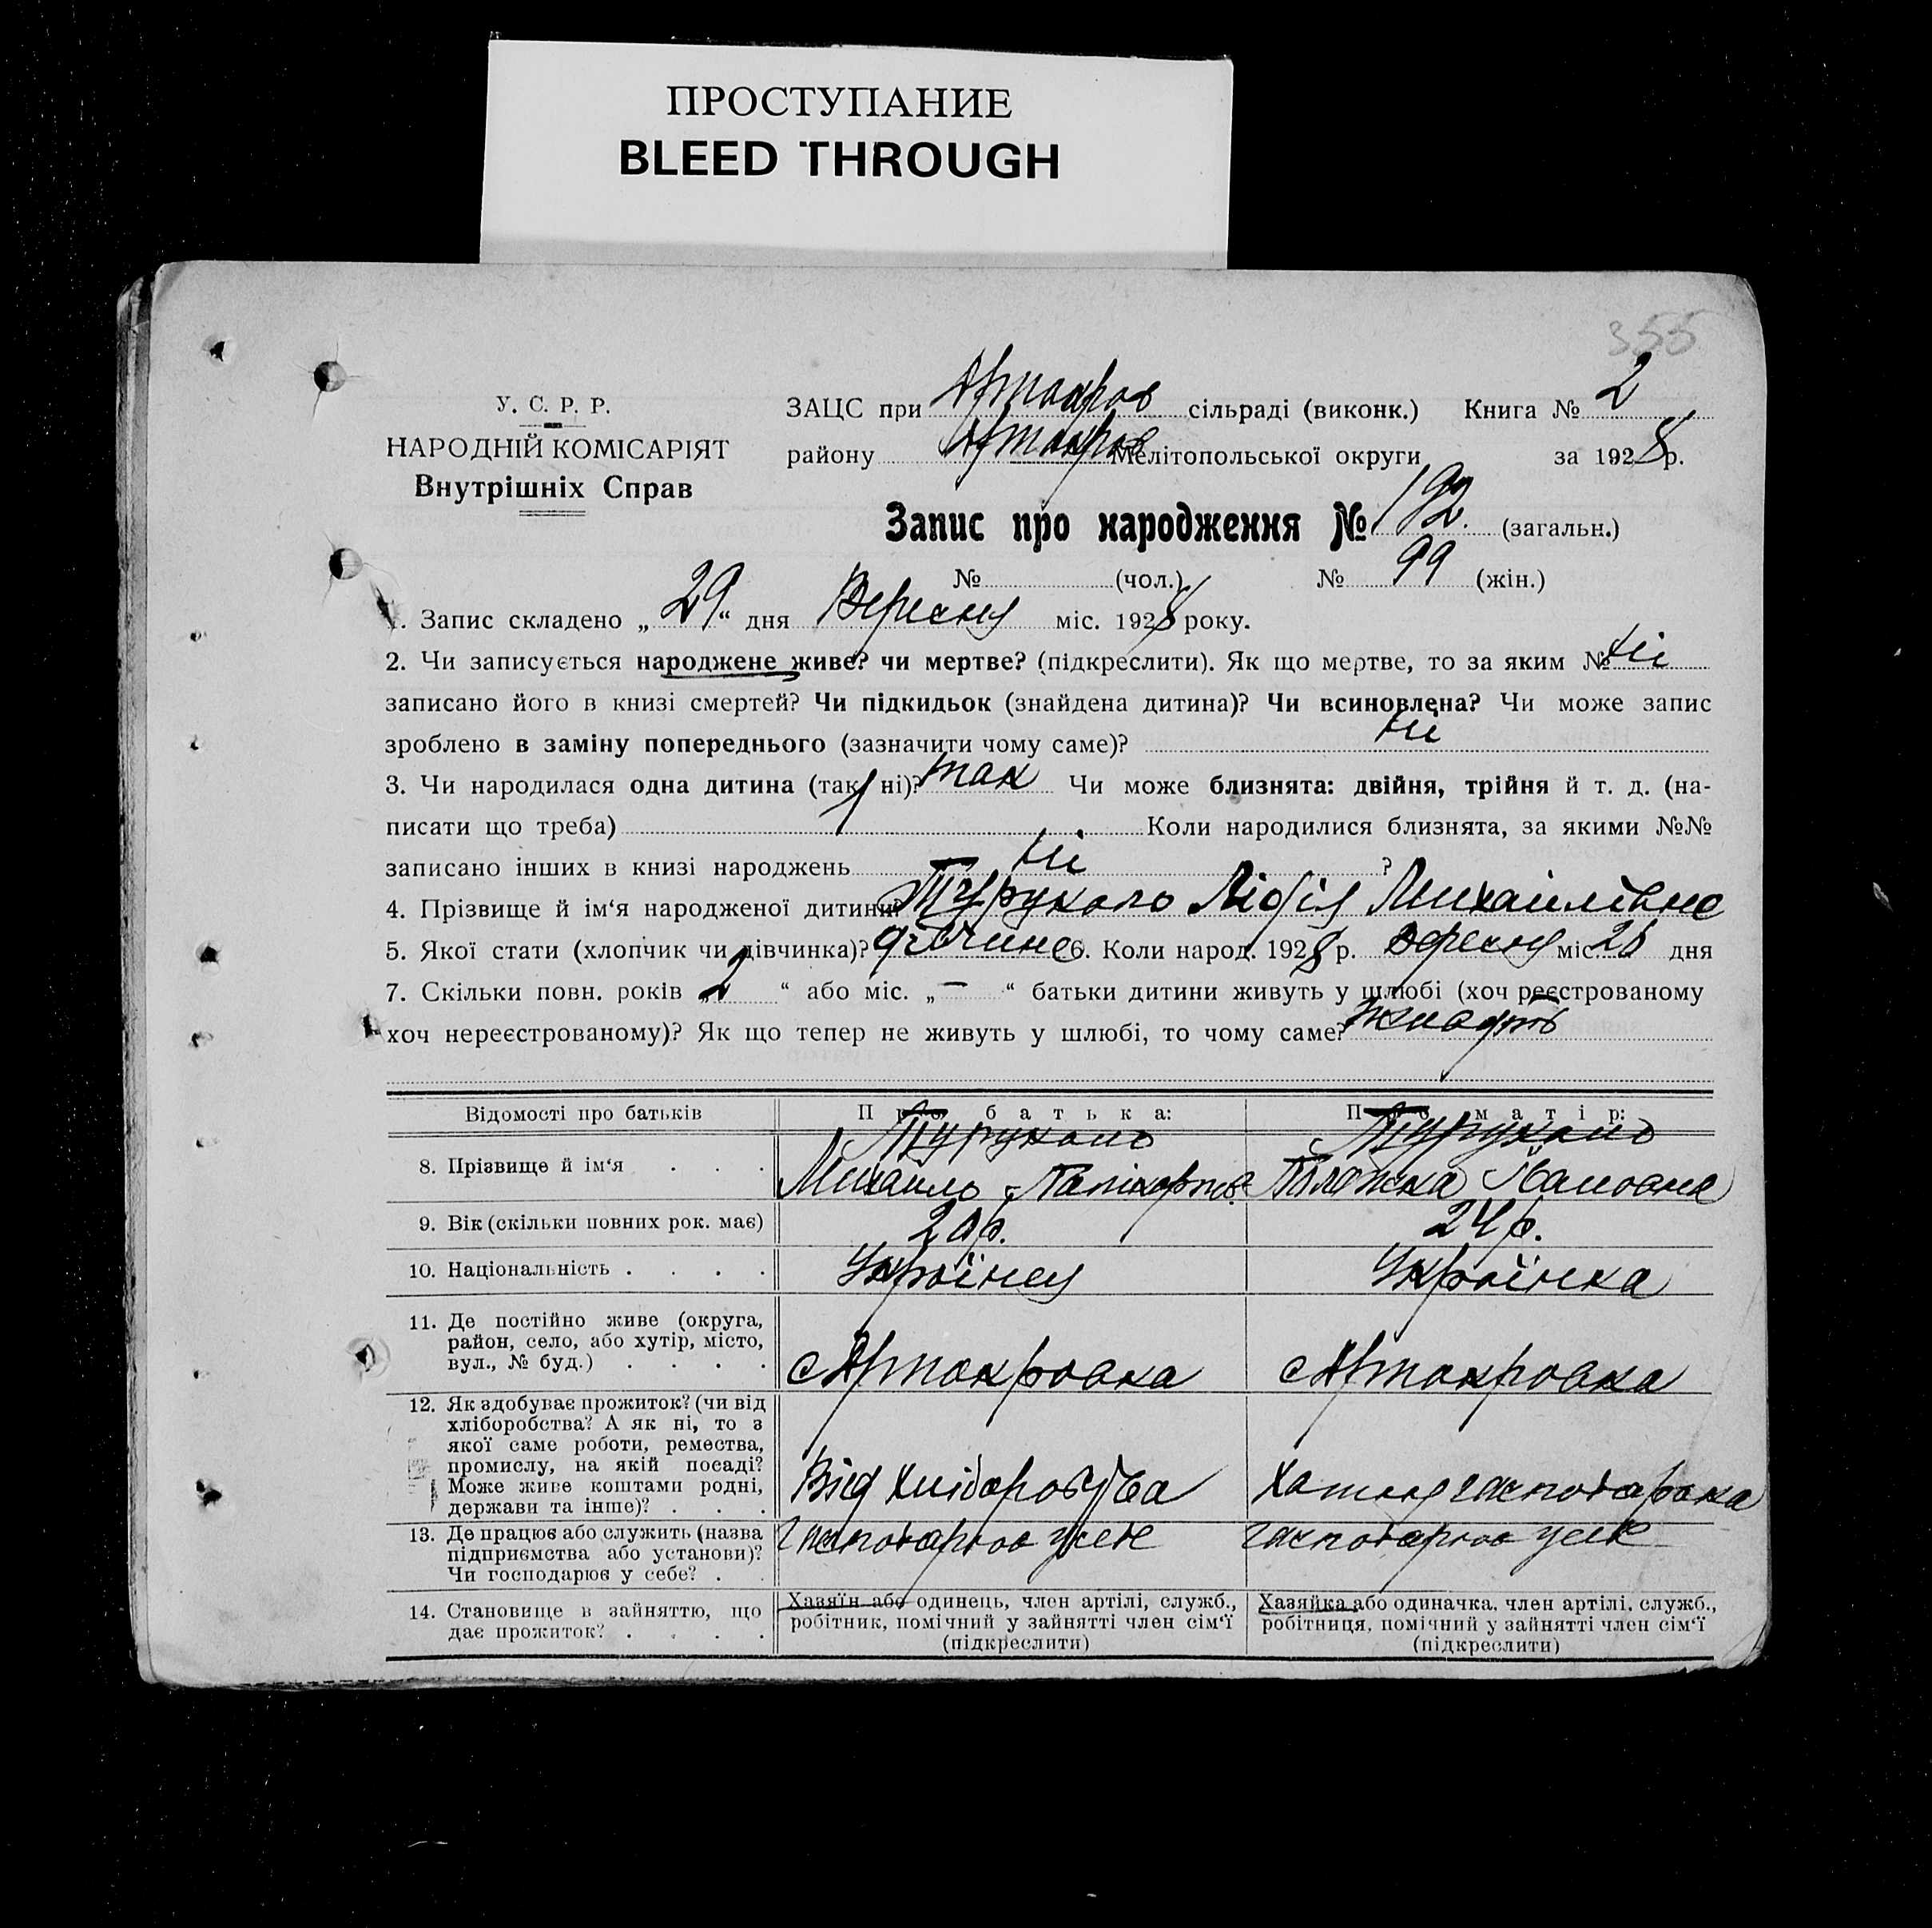 ПРОСТУПАНИЕ
BLEED THROUGH
355
У. С. Р. Р.
НАРОДНІЙ КОМІСАРІЯТ
Внутрішніх Справ
ЗАЦС при сільраді (виконк.) Книга № 2
району Мелітопольської округи за 1928 р.
Запис про народження № 192. (загальн.)
№ (чол.) № 99 (жін.)
1. Запис складено „29“ дня Вересня міс. 1928 року.
2. Чи записується народжене живе? чи мертве? (підкреслити). Як що мертве, то за яким № Ні
записано його в книзі смертей? Чи підкидьок (знайдена дитина)? Чи всиновлена? Чи може запис
зроблено в заміну попереднього (зазначити чому саме)? Ні
3. Чи народилася одна дитина (так, ні)? так Чи може близнята: двійня, трійня й т. д. (на-
писати що треба) Коли народилися близнята, за якими №№
записано інших в книзі народжень Ні ?
4. Прізвище й ім‘я народженої дитини? Лідія Михайлівна
5. Якої стати (хлопчик чи дівчинка)? дівчина 6. Коли народ. 1928 р. вересня міс. дня
7. Скільки повн. років „2“ або міс. „—“ батьки дитини живуть у шлюбі (хоч реєстрованому
хоч нереєстрованому)? Як що тепер не живуть у шлюбі, то чому саме?
Відомості про батьків Про батька: Про матір:
8. Прізвище й ім‘я . . .
Михайло
9. Вік (скільки повних рок. має) 24 р.
10. Національність . . . . Українец Українка
11. Де постійно живе (округа,
район, село, або хутір, місто,
вул., № буд.) . . . .
12. Як здобуває прожиток? (чи від
хліборобства? А як ні, то з
якої саме роботи, ремества,
промислу, на якій посаді?
Може живе коштами родні,
держави та інше)? . . .
Від хліборобства
13. Де працює або служить (назва
підприємства або установи)?
Чи господарює у себе? . .
14. Становище в зайняттю, що
дає прожиток? . . . .
Хазяїн або одинець, член артілі, служб.,
робітник, помічний у зайнятті член сім‘ї
(підкреслити)
Хазяйка або одиначка, член артілі, служб.,
робітниця, помічний у зайнятті член сім‘ї
(підкреслити)